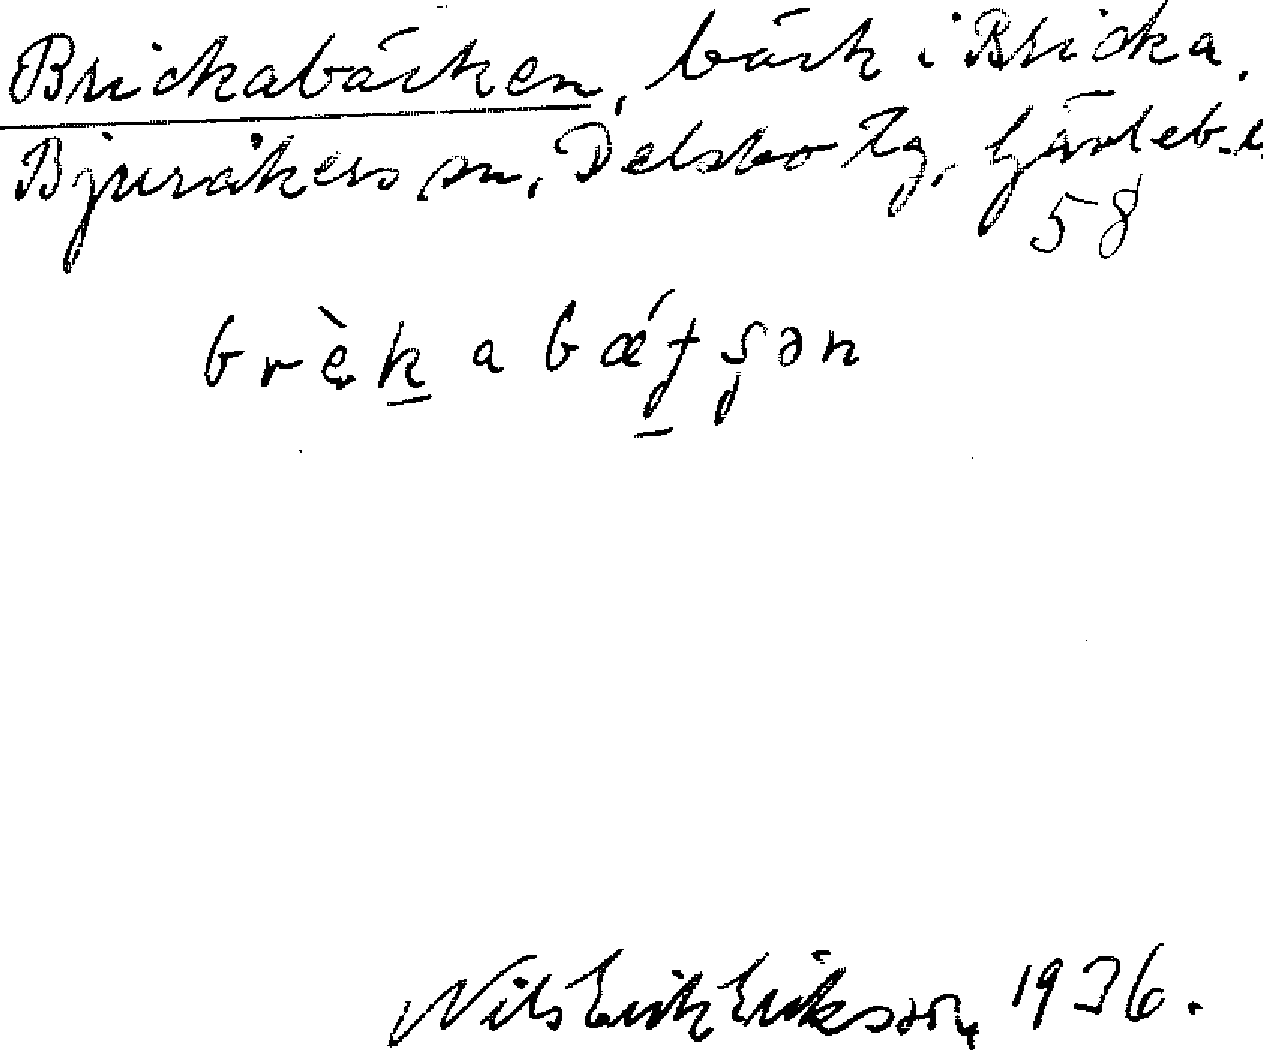 Brickabäcken, bäck i Bricka,
Bjuråkers sn, Delsbo tg, Gävleb. l.
58
brèkabǽtʂən
Nils Erik Eriksson, 1936.